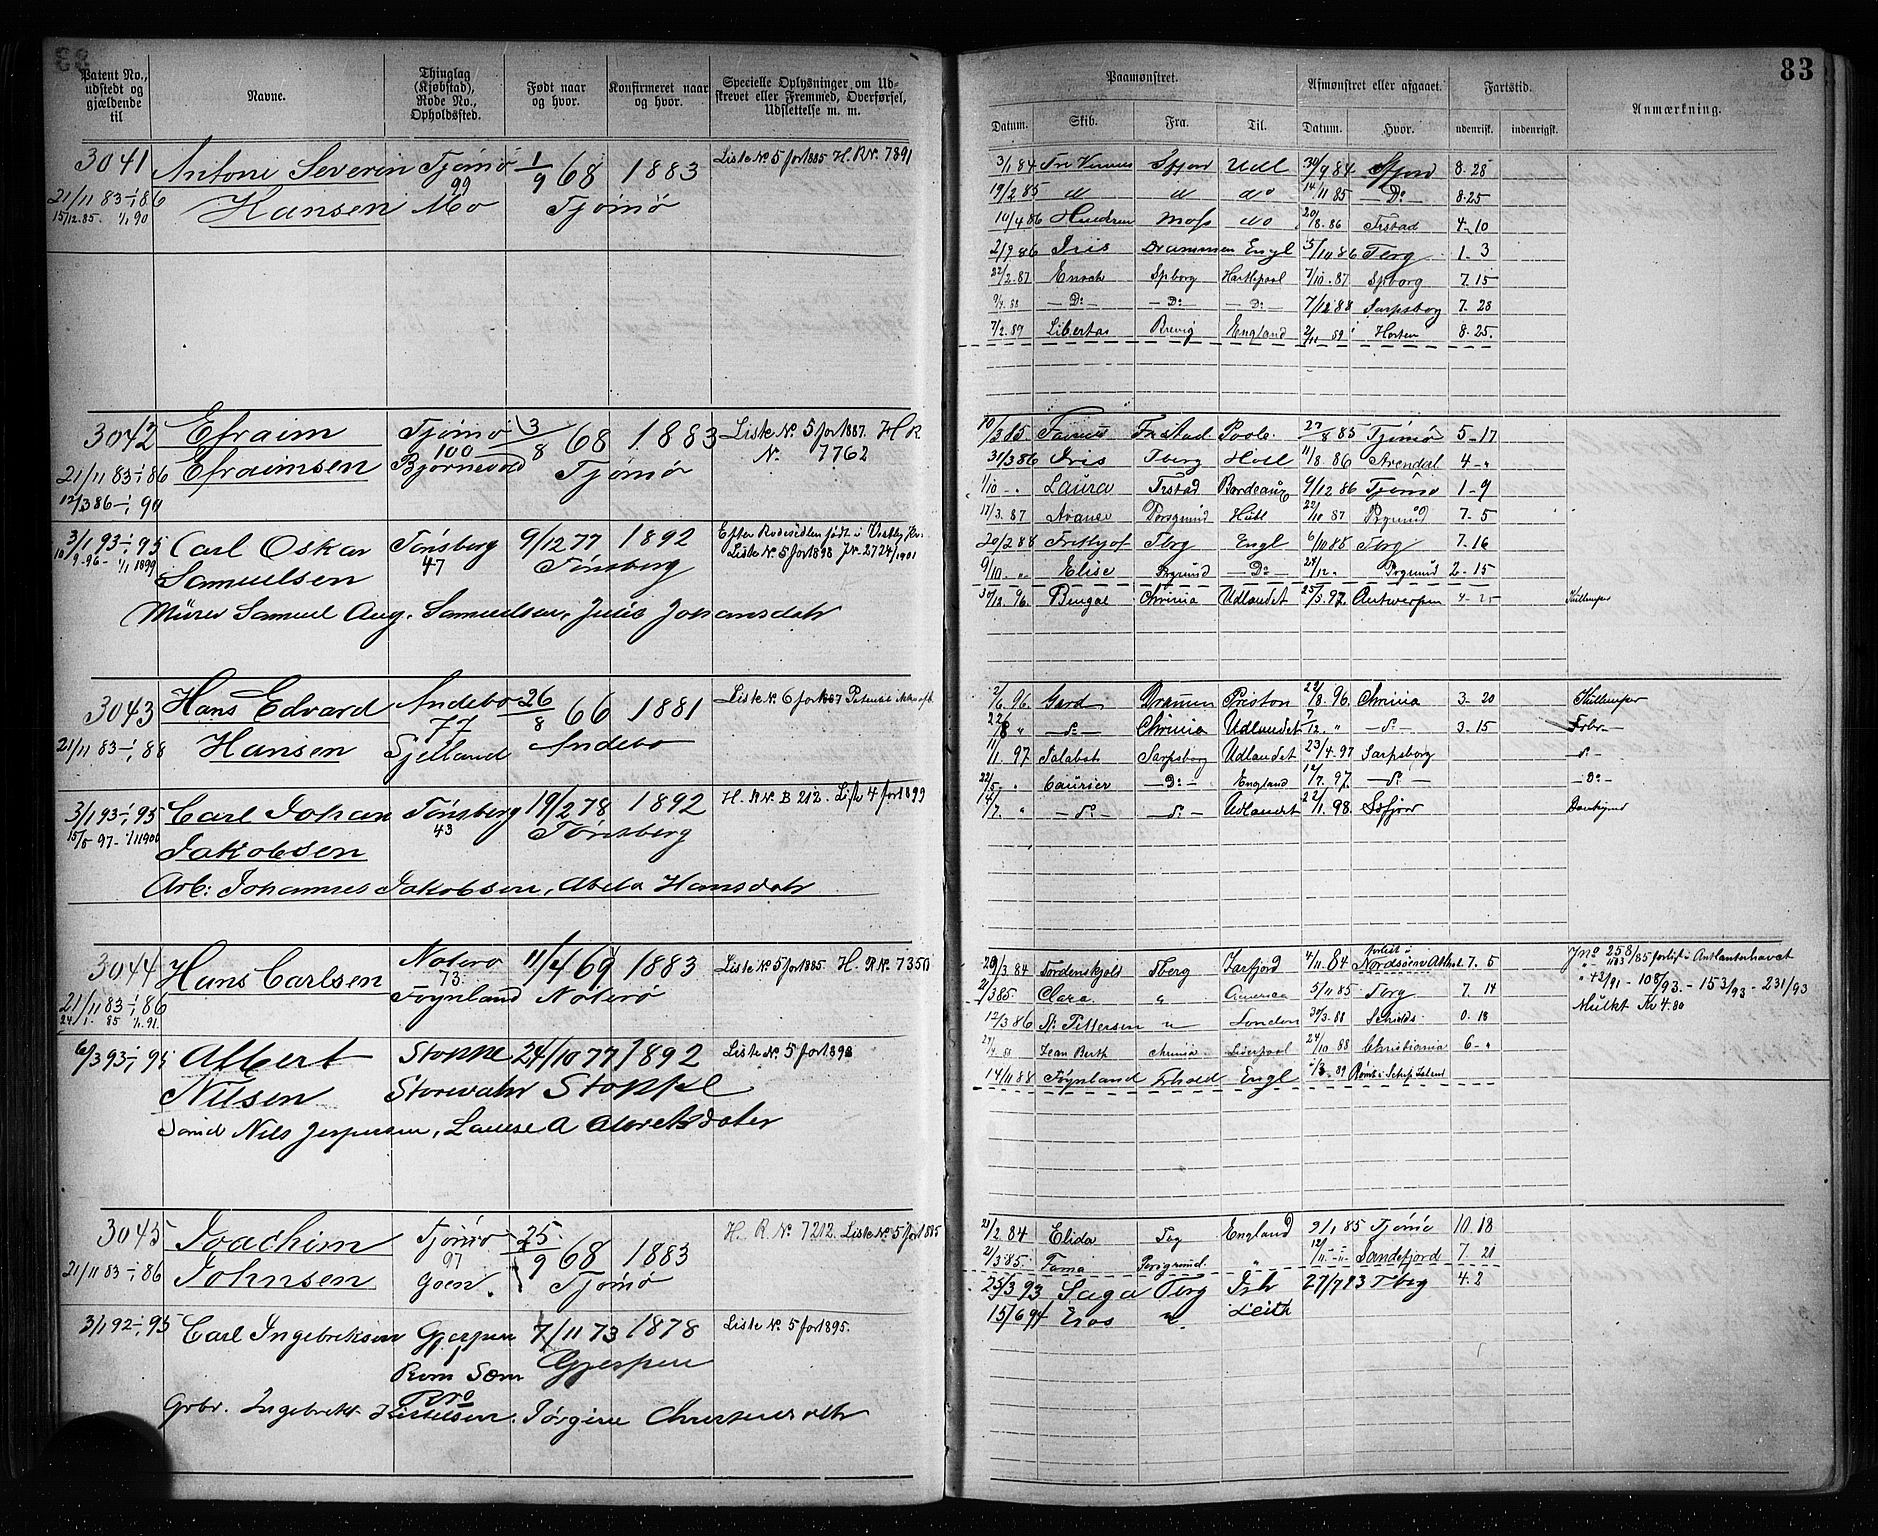 83
Patent No., udstedt og gjældende til
Navne.
Thinglag (Kjøbstad), Rode No., Opholdssted.
Født naar og hvor.
Konfirmeret naar og hvor.
Specielle Oplysninger om Udskrevet eller Fremmed, Overførsel, Udslettelse m. m.
Paamønstret.
Afmønstret eller afgaaet.
Fartstid.
Anmærkning.
Datum. Skib. Fra. Til. Datum. Hvor. udenrisk. indenrigsk.
3041 Antoni Severin Tjømø 1/9 68 1883 Liste No. 5 for 1885 H. R No. 7891
21/11 83 - 1/1 86 Hansen 99 Mo Tjømø
15/12. 85. 1/1 90
3/1 84 Sfjord Udl 30/9 84 Sfjord 8-28
19/2 85 " " do 14/11 85 Do 8-25
10/4 86 Moss do 20/8. 86 Frstad 4-10
2/9 86 Iris Drammen Engl 5/10 86 Tbrg 1-3
22/2. 87 Enoch Spborg Hartlepool 7/10. 87 Spborg 7. 15
9/4. 88 - Do - - Do - - Do - 7/12 88 Sarpsborg 7. 28
7/2. 89 Libertas Brevig England 2/11 89 Horten 8. 25.
3042 Efraim Tjømø 3/8 68 1883 Liste No. 5 for 1887. H R
21/11 83 - 1/1 86 Efraimsen 100 Bjørnevold Tjømø No. 7762
12/3 86 - 1/1 90
10/3 85 Frstad Poole. 27/8 85 Tjømø 5-17
31/3 86 Iris Tberg Hull 11/8. 86 Arendal 4-"
1/10 - . Laura Frstad Bordeaux 9/12 86 Tjømø 1-9
17/3. 87 Avance Porsgrund Hull 22/10 87 Prgrund 7-5
20/2 88 Frithjof Tbrg Engl 6/10 88 Tbrg 7. 16
9/10. " Elise Prgrund - Do - 24/12. Prgrund 2-15
3/1 93 - 1/1 95 Carl Oskar Tønsberg 9/12 77 1892 Efter Rodesedlen født i Vestby
10/9. 96 - 1/1 1899 Samuelsen 47 Tønsberg Liste No. 5 for 1898 J No. 2724/1901
Murer Samuel Aug. Samuelsen, Julis Johansdatr
96. Bengal Chrinia Udlandet 25/5. 97. Antwerpen 4-25 Kullemper
3043 Hans Edvard Andebo 26/8 66 1881 Liste No. 6 for 1887
21/11 83 - 1/1 88 Hansen 77 Sjelland Andebo
3/1 93 - 1/1 95 Carl Johan Tønsberg 19/2 78 1892 H. R No. B 212. Liste 4 for 1899
15/5 97 - 1/1 1900 Jakobsen 43 Tønsberg
Arb: Johannes Jakobsen, Abela Hansdatr
2/6. 96. Gard Drammen Preston 22/8. 96. Chrinia 3-20 Kullemper
22/8 " - do - Chrinia Udlandet 7/12. " - do - 3-15 Do
11/1. 97. Salabat Sarpsborg Udlandet 23/4. 97 Sarpsborg do -
22/5 " Courier - Do - England 12/7. 97. - do - - Do -
14/7. " - do - - do - Udlandet 22/1. 98. Ssfjord Donkymd
3044 Hans Carlsen Nøterø 11/4 69 1883 Liste No. 5 for 1885. H. R No. 7350
21/11 83 - 1/1 86 73. Føynland Nøterø
24/1. 85 1/1. 91.
29/3 84 Tordenskjold Tberg Isefjord 4/11. 84 forlist i Nordsøen 7. 5 Jno 258/85 forlist i Atlanterhavet
21/3 85. Clara. " America 5/11 85 Tbrg 7. 14 " 42/91 - 108/93. - 153/93 - 231/93
12/3 86 N: Pettersen " London 30/3. 88 Schields 0. 18 Mulkt Kr 4.80
27/4. 88 Jean Berth Chrinia Liverpool 24/10 88 Christiania 6-"
14/11 88 Føynland Frhald Engl 3. 89 Rømt i
6/3 93 - 1/1 95 Albert Stokke 24/10 77 1892 Liste No. 5 for 1898
Nilsen Storevahr Stokke
Nils Jespersen, Lauise A Albretsdater
3045 Joachim Tjømø 25/9 68 1883 H. R. No. 7212. Liste No. 5 for 1885
21/11 83 - 1/1 86 Johnsen 97 Goen. Tjømø
21/2. 84 Elida Tbg England 9/1 85 Tjømø 10. 18
21/3 85. Fama Porsgrund. " 12/11 - " - Sandefjord 7. 21
25/3 93 Saga Tbrg 27/7 93 Tberg 4. 2
15/6 94 Eros " Leith
3/1 92 - 1/1 95 Carl Ingebretsen Gjerpen 7/11 73 1878 Liste No. 5 for 1895.
Gjerpen
Grbr. Ingebret Kittelsen. Jørgine Christensdtr